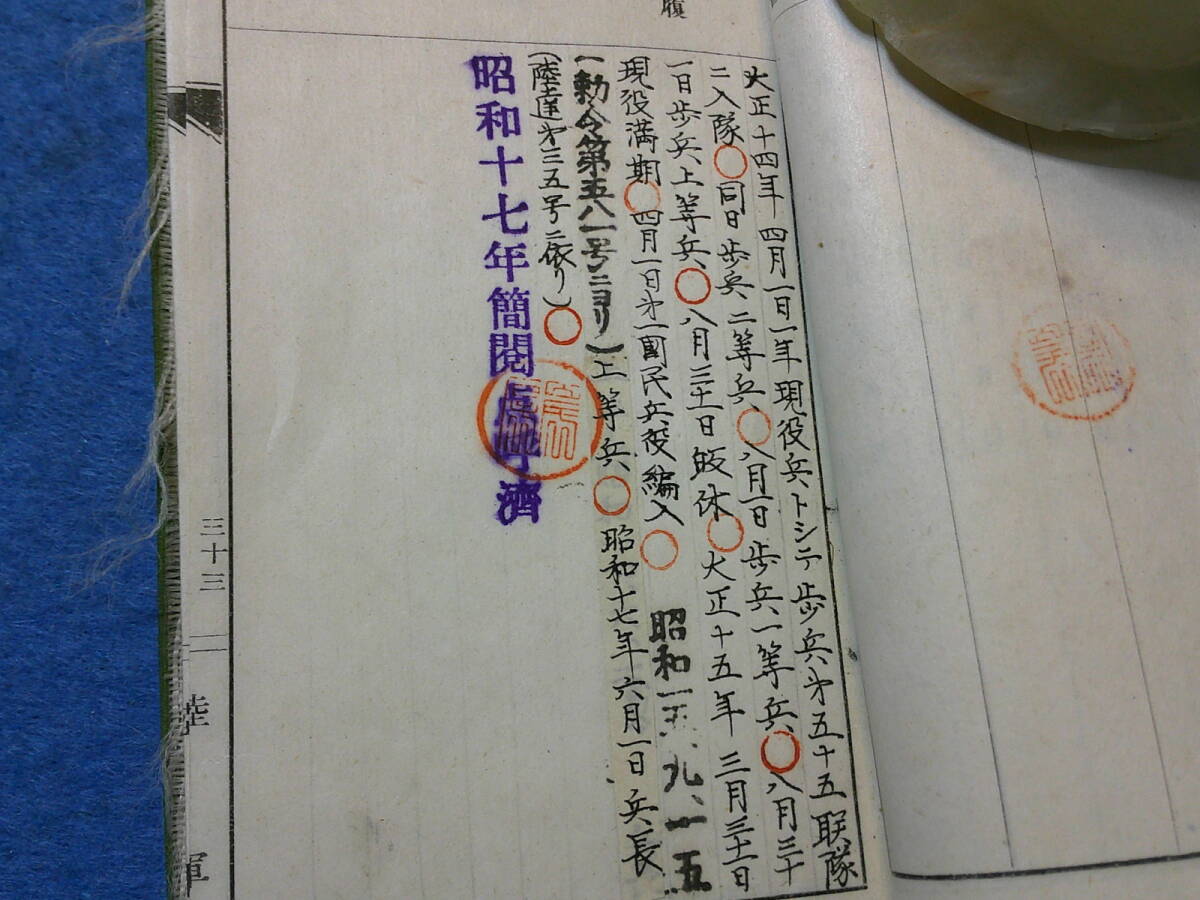 履
大正十四年四月一日一年現役兵トシテ歩兵才五十五联隊
ニ入隊○同日歩兵二等兵、○八月一日歩兵一等兵、○八月三十
一日歩兵上等兵、○八月三十一日皈休○大正十五年三月三十一日
現役満期○四月一日才一國民兵役編入○昭和一五、九、一五
(勅令第五八一号ニヨリ)上等兵○昭和十七年六月一日兵長
(陸達才三五号ニ依リ)○
昭和十七年簡閲点呼済
三十三
陸
軍